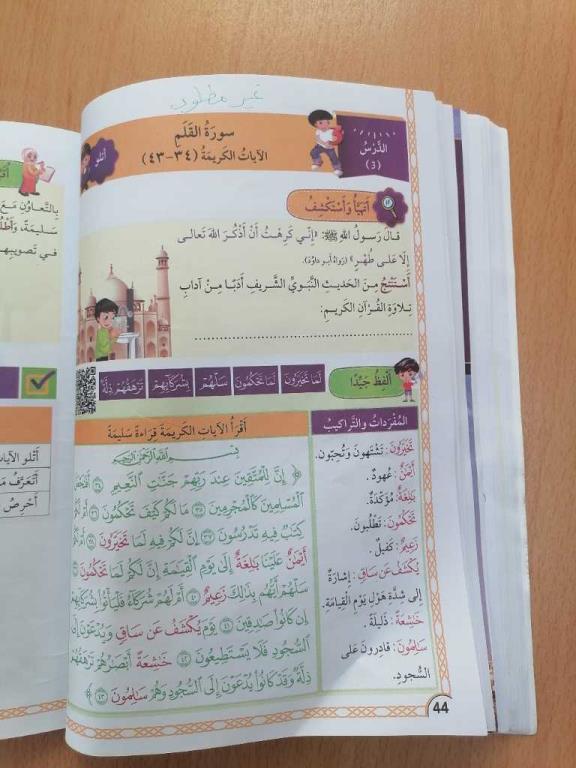 غير مطلوب
الدَّرْسُ
(3)
سورَةُ القَلَمِ
الآياتُ الكَريمَةُ (٣٤-٤٣)
أَتْلو
أَتَهَيَّأُ وَأَسْتَكْشِفُ
قالَ رَسولُ اللهِ ﷺ: «إِنّي كَرِهْتُ أَنْ أَذْكُرَ اللهَ تَعالى
إِلّا عَلى طُهْرٍ» (رَواهُ أَبو داوُدَ).
أَسْتَنْتِجُ مِنَ الحَديثِ النَّبَوِيِّ الشَّريفِ أَدَبًا مِنْ آدابِ
تِلاوَةِ القُرْآنِ الكَريمِ:
أَلْفِظُ جَيِّدًا
لَمَا تَخَيَّرُونَ
لَمَا تَحْكُمُونَ
سَلْهُمْ
بِشُرَكَآئِهِمْ
تَرْهَقُهُمْ ذِلَّةٌ
المُفْرَداتُ والتَّراكيبُ
تَخَيَّرُونَ: تَشْتَهونَ وَتُحِبّونَ.
أَيْمَٰنٌ: عُهودٌ.
بَٰلِغَةٌ: مُؤَكَّدَةٌ.
تَحْكُمُونَ: تَطْلُبونَ.
زَعِيمٌ: كَفيلٌ.
يُكْشَفُ عَن سَاقٍ: إِشارَةٌ
إِلى شِدَّةِ هَوْلِ يَوْمِ القِيامَةِ.
خَٰشِعَةً: ذَليلَةً.
سَٰلِمُونَ: قادِرونَ عَلى
السُّجودِ.
أَقْرَأُ الآياتِ الكَريمَةَ قِراءَةً سَليمَةً
بِسْمِ اللَّهِ الرَّحْمَٰنِ الرَّحِيمِ
﴿ إِنَّ لِلْمُتَّقِينَ عِندَ رَبِّهِمْ جَنَّٰتِ النَّعِيمِ ٣٤ أَفَنَجْعَلُ
الْمُسْلِمِينَ كَالْمُجْرِمِينَ ٣٥ مَا لَكُمْ كَيْفَ تَحْكُمُونَ ٣٦
كِتَٰبٌ فِيهِ تَدْرُسُونَ ٣٧ إِنَّ لَكُمْ فِيهِ لَمَا تَخَيَّرُونَ ٣٨
أَيْمَٰنٌ عَلَيْنَا بَٰلِغَةٌ إِلَىٰ يَوْمِ الْقِيَٰمَةِ إِنَّ لَكُمْ لَمَا تَحْكُمُونَ ٣٩
سَلْهُمْ أَيُّهُم بِذَٰلِكَ زَعِيمٌ ٤٠ أَمْ لَهُمْ شُرَكَآءُ فَلْيَأْتُوا بِشُرَكَآئِهِمْ
إِن كَانُوا صَٰدِقِينَ ٤١ يَوْمَ يُكْشَفُ عَن سَاقٍ وَيُدْعَوْنَ إِلَى
السُّجُودِ فَلَا يَسْتَطِيعُونَ ٤٢ خَٰشِعَةً أَبْصَٰرُهُمْ تَرْهَقُهُمْ
ذِلَّةٌ وَقَدْ كَانُوا يُدْعَوْنَ إِلَى السُّجُودِ وَهُمْ سَٰلِمُونَ ٤٣ ﴾
44
بِالتَّعاوُنِ مَعَ
سَليمَةً،
في تَصْويبِها
أَتْلو الآياتِ
أَتَعَرَّفُ
أَحْرِصُ